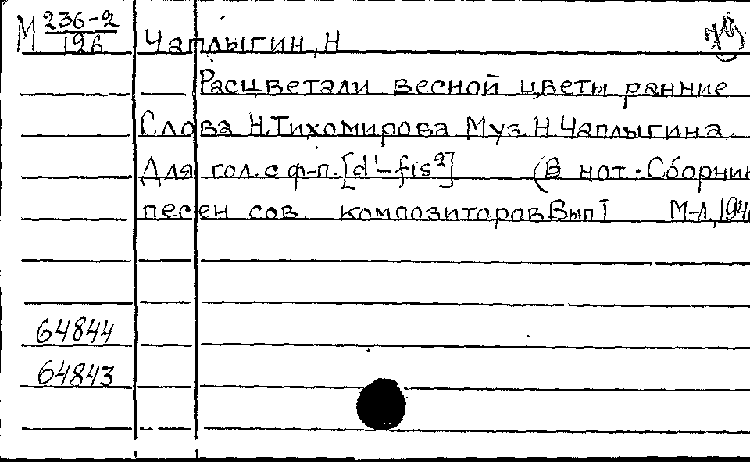 М 236-2 Чаплыгин, Н
126
Расцветали весной цветы ранние
Слова Н.Тихомирова Муз. Н.Чаплыгина.
Для гол. с ф-п. [d¹-fis²] (В нот. Сборник
песен сов. композиторов Вып I М-Л,194
64844
64843